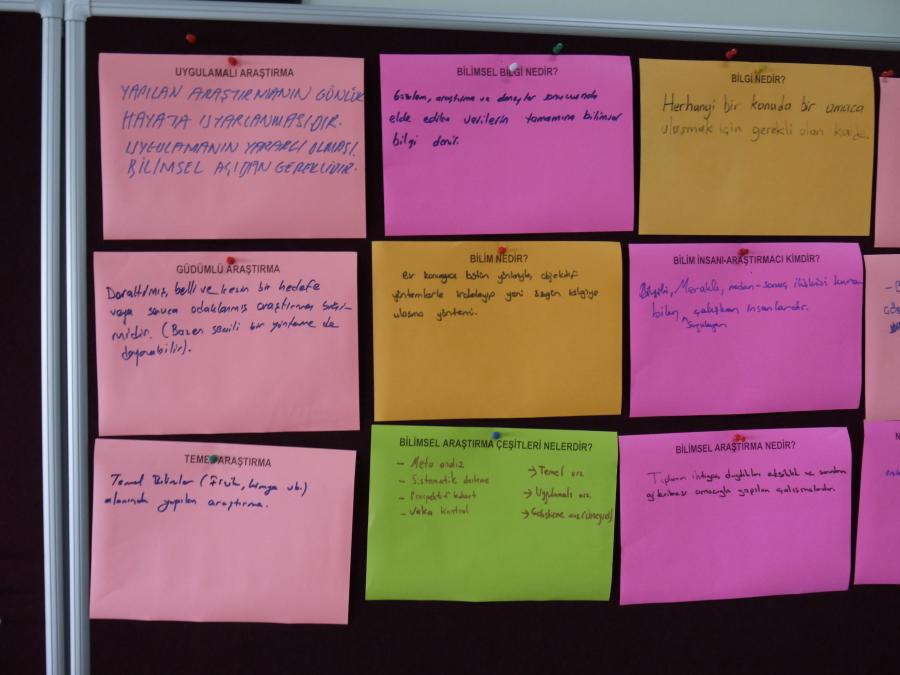 UYGULAMALI ARAŞTIRMA
YAPILAN ARAŞTIRMANIN GÜNLÜK
HAYATA UYARLANMASIDIR.
UYGULAMANIN YARARLI OLMASI.
BİLİMSEL AÇIDAN GEREKLİDİR.
BİLİMSEL BİLGİ NEDİR?
Gözlem, araştırma ve deneyler sonucunda
elde edilen verilerin tamamına bilimsel
bilgi denir.
BİLGİ NEDİR?
Herhangi bir konuda bir amaca
ulaşmak için gerekli olan
GÜDÜMLÜ ARAŞTIRMA
Daraltılmış, belli ve kesin bir hedefe
veya sonuca odaklanmış araştırma
(Bazen sevili bir yönteme de
dayanabilir).
BİLİM NEDİR?
Bir konuyu bütün yönleriyle, objektif
yöntemlerle irdeleyip yeni bilgiye
ulaşma yöntemi.
BİLİM İNSANI-ARAŞTIRMACI KİMDİR?
Bilgili, Meraklı, neden-sonuç ilişkisi kura
bilen çalışkan insanlardır.
Sorgulayan
TEMEL ARAŞTIRMA
Temel Bilimler (Fizik, kimya vb.)
alanında yapılan araştırma.
BİLİMSEL ARAŞTIRMA ÇEŞİTLERİ NELERDİR?
- Meta analiz → Temel ara.
- Sistematik derleme
- Prospektif kohort → Uygulamalı ara.
- Vaka kontrol → Geliştirme ara.
BİLİMSEL ARAŞTIRMA NEDİR?
Toplumun ihtiyaç duydukları eksiklik ve
amacıyla yapılan çalışmalardır.